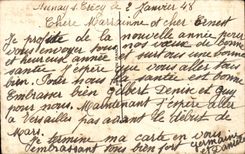 Aunay s/ Crécy le 2 Janvier 48
Chère Marraine et cher Ernest
Je profite de la nouvelle année pour
vous envoyer tous nos vœux de bonne
et heureuse année et surtout une bonne
santé. J'espère que vous allez tous
bien. Pour nous la santé est bonne
Embrasse bien Gilbert Denise et Guy
pour nous. Maintenant j'espère aller
à Versailles pas avant le début de
Mars.
Je termine ma carte en vous
embrassant tous bien fort
Germaine
et Daniel